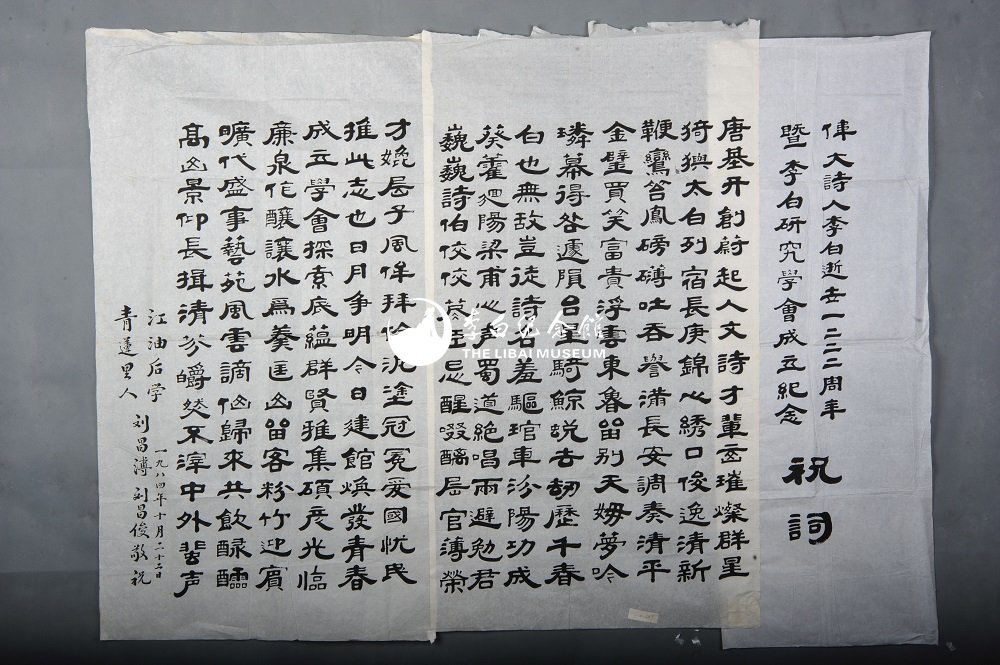 偉大詩人李白逝世一二二二周年
暨李白研究學會成立纪念 祝詞
唐基开創蔚起人文詩才輩出璀燦群星
猗與太白列宿長庚錦心綉口俊逸清新
鞭鸞笞鳳磅礴吐吞譽满長安調奏清平
金璧買笑富貴浮雲東魯留别天姆夢吟
璘幕得咎遽隕台星騎鯨蛻去劫歷千春
白也無敌豈徒詩名羞驅琯車汾陽功成
葵藿廻陽梁甫心声蜀道絕唱兩避勉君
巍巍詩伯佼佼臣忌醒啜醨屈官薄榮
才媲屈子風侔拜伦泥塗冠冕爱國忧民
推此志也日月争明今日建館焕發青春
成立學會探索底蘊群賢雅集碩彦光臨
廉泉作釀讓水爲羹匡山留客粉竹迎賓
曠代盛事藝苑風雲謫仙歸來共飲醁醽
高山景仰長揖清芬皭然不滓中外蜚声
江油后学
青蓮里人
刘昌溥 刘昌俊敬祝
一九八四年十月二十二日
李白纪念館
THE LIBAI MUSEUM